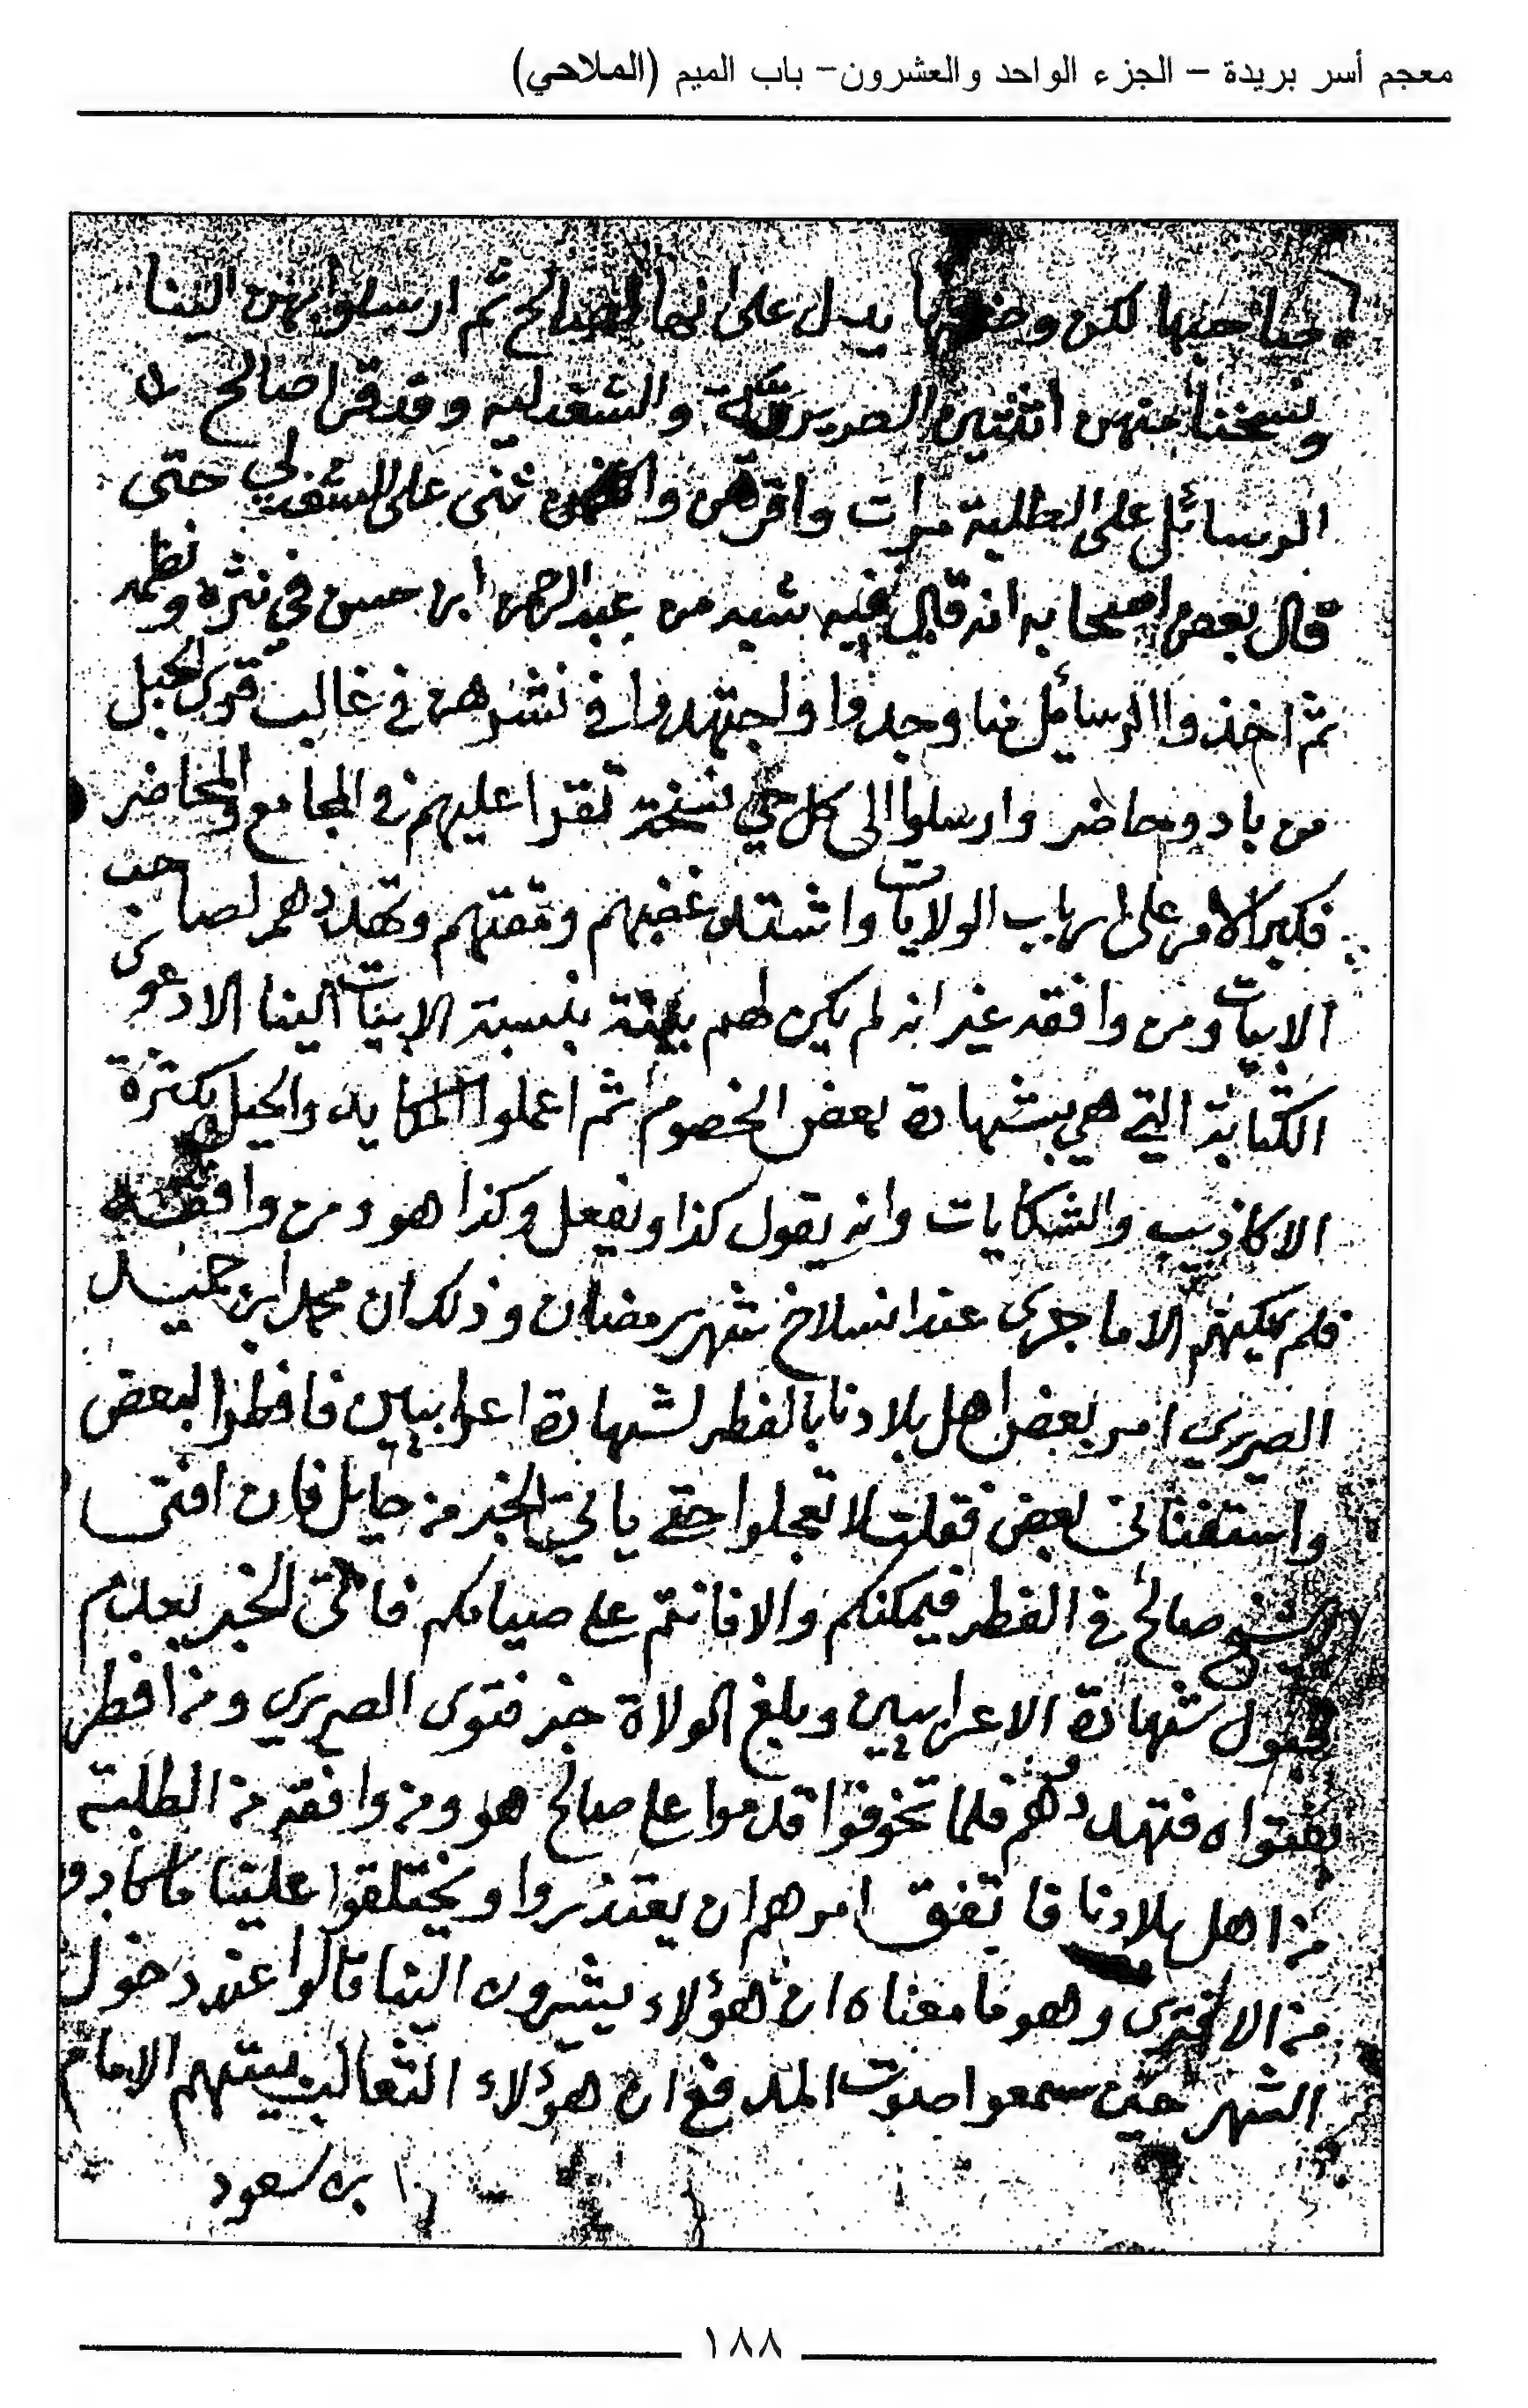 معجم أسر بريدة – الجزء الواحد والعشرون– باب الميم (الملاحي)
صاحبها لكن وضعها يدل على انها لصالح ثم ارسلوا بهن الينا
ونسخنا منهن اثنتين والشغدليه وقد قرا صالح
الرسائل على الطلبة مرات واقرهن واثنى على الشغدلي حتى
قال بعض اصحابه انه قال فيه شبه من عبدالرحمن ابن حسن في نثره ونظمه
ثم اخذوا الرسائل منا وجدوا واجتهدوا في نشرهن في غالب قرى الجبل
من باد وحاضر وارسلوا الى كل حي نسخة تقرا عليهم في المجامع والمحاضر
فكبر الامر على ارباب الولايات واشتد غضبهم ومقتهم وتهددهم لصاحب
الابيات ومن وافقه غير انه لم يكن لهم بينة بنسبة الابيات الينا الا دعوى
الكتابة التي هي بشهادة بعض الخصوم ثم اعملوا المكايد والحيل بكثرة
الاكاذيب والشكايات وانه يقول كذا ويفعل وكذا هو ومن وافقه
فلم يمكنهم الا ما جرى عند انسلاخ شهر رمضان وذلك ان محمد ابن حميد
الصريري امر بعض اهل بلادنا بالفطر لشهادة اعرابيين فافطر البعض
واستفتاني بعض فقلت لا تعجلوا حتى ياتي الخبر من حايل فان افتى
الشيخ صالح في الفطر فيمكنكم والا فانتم على صيامكم فاتى الخبر بعدم
قبول شهادة الاعرابيين وبلغ الولاة خبر فتوى الصريري ومن افطر
بفتواه فتهددوهم فلما تخوفوا قدموا على صالح هو ومن وافقه من الطلبة
من اهل بلادنا فاتفق امرهم ان يعتذروا ويختلقوا علينا ما كادو
من الافترى وهو ما معناه ان هؤلاء يشيرون الينا قالوا عند دخول
الشهر حين سمعوا صوت المدفع ان هؤلاء الثعالب الامام
ابن سعود
١٨٨